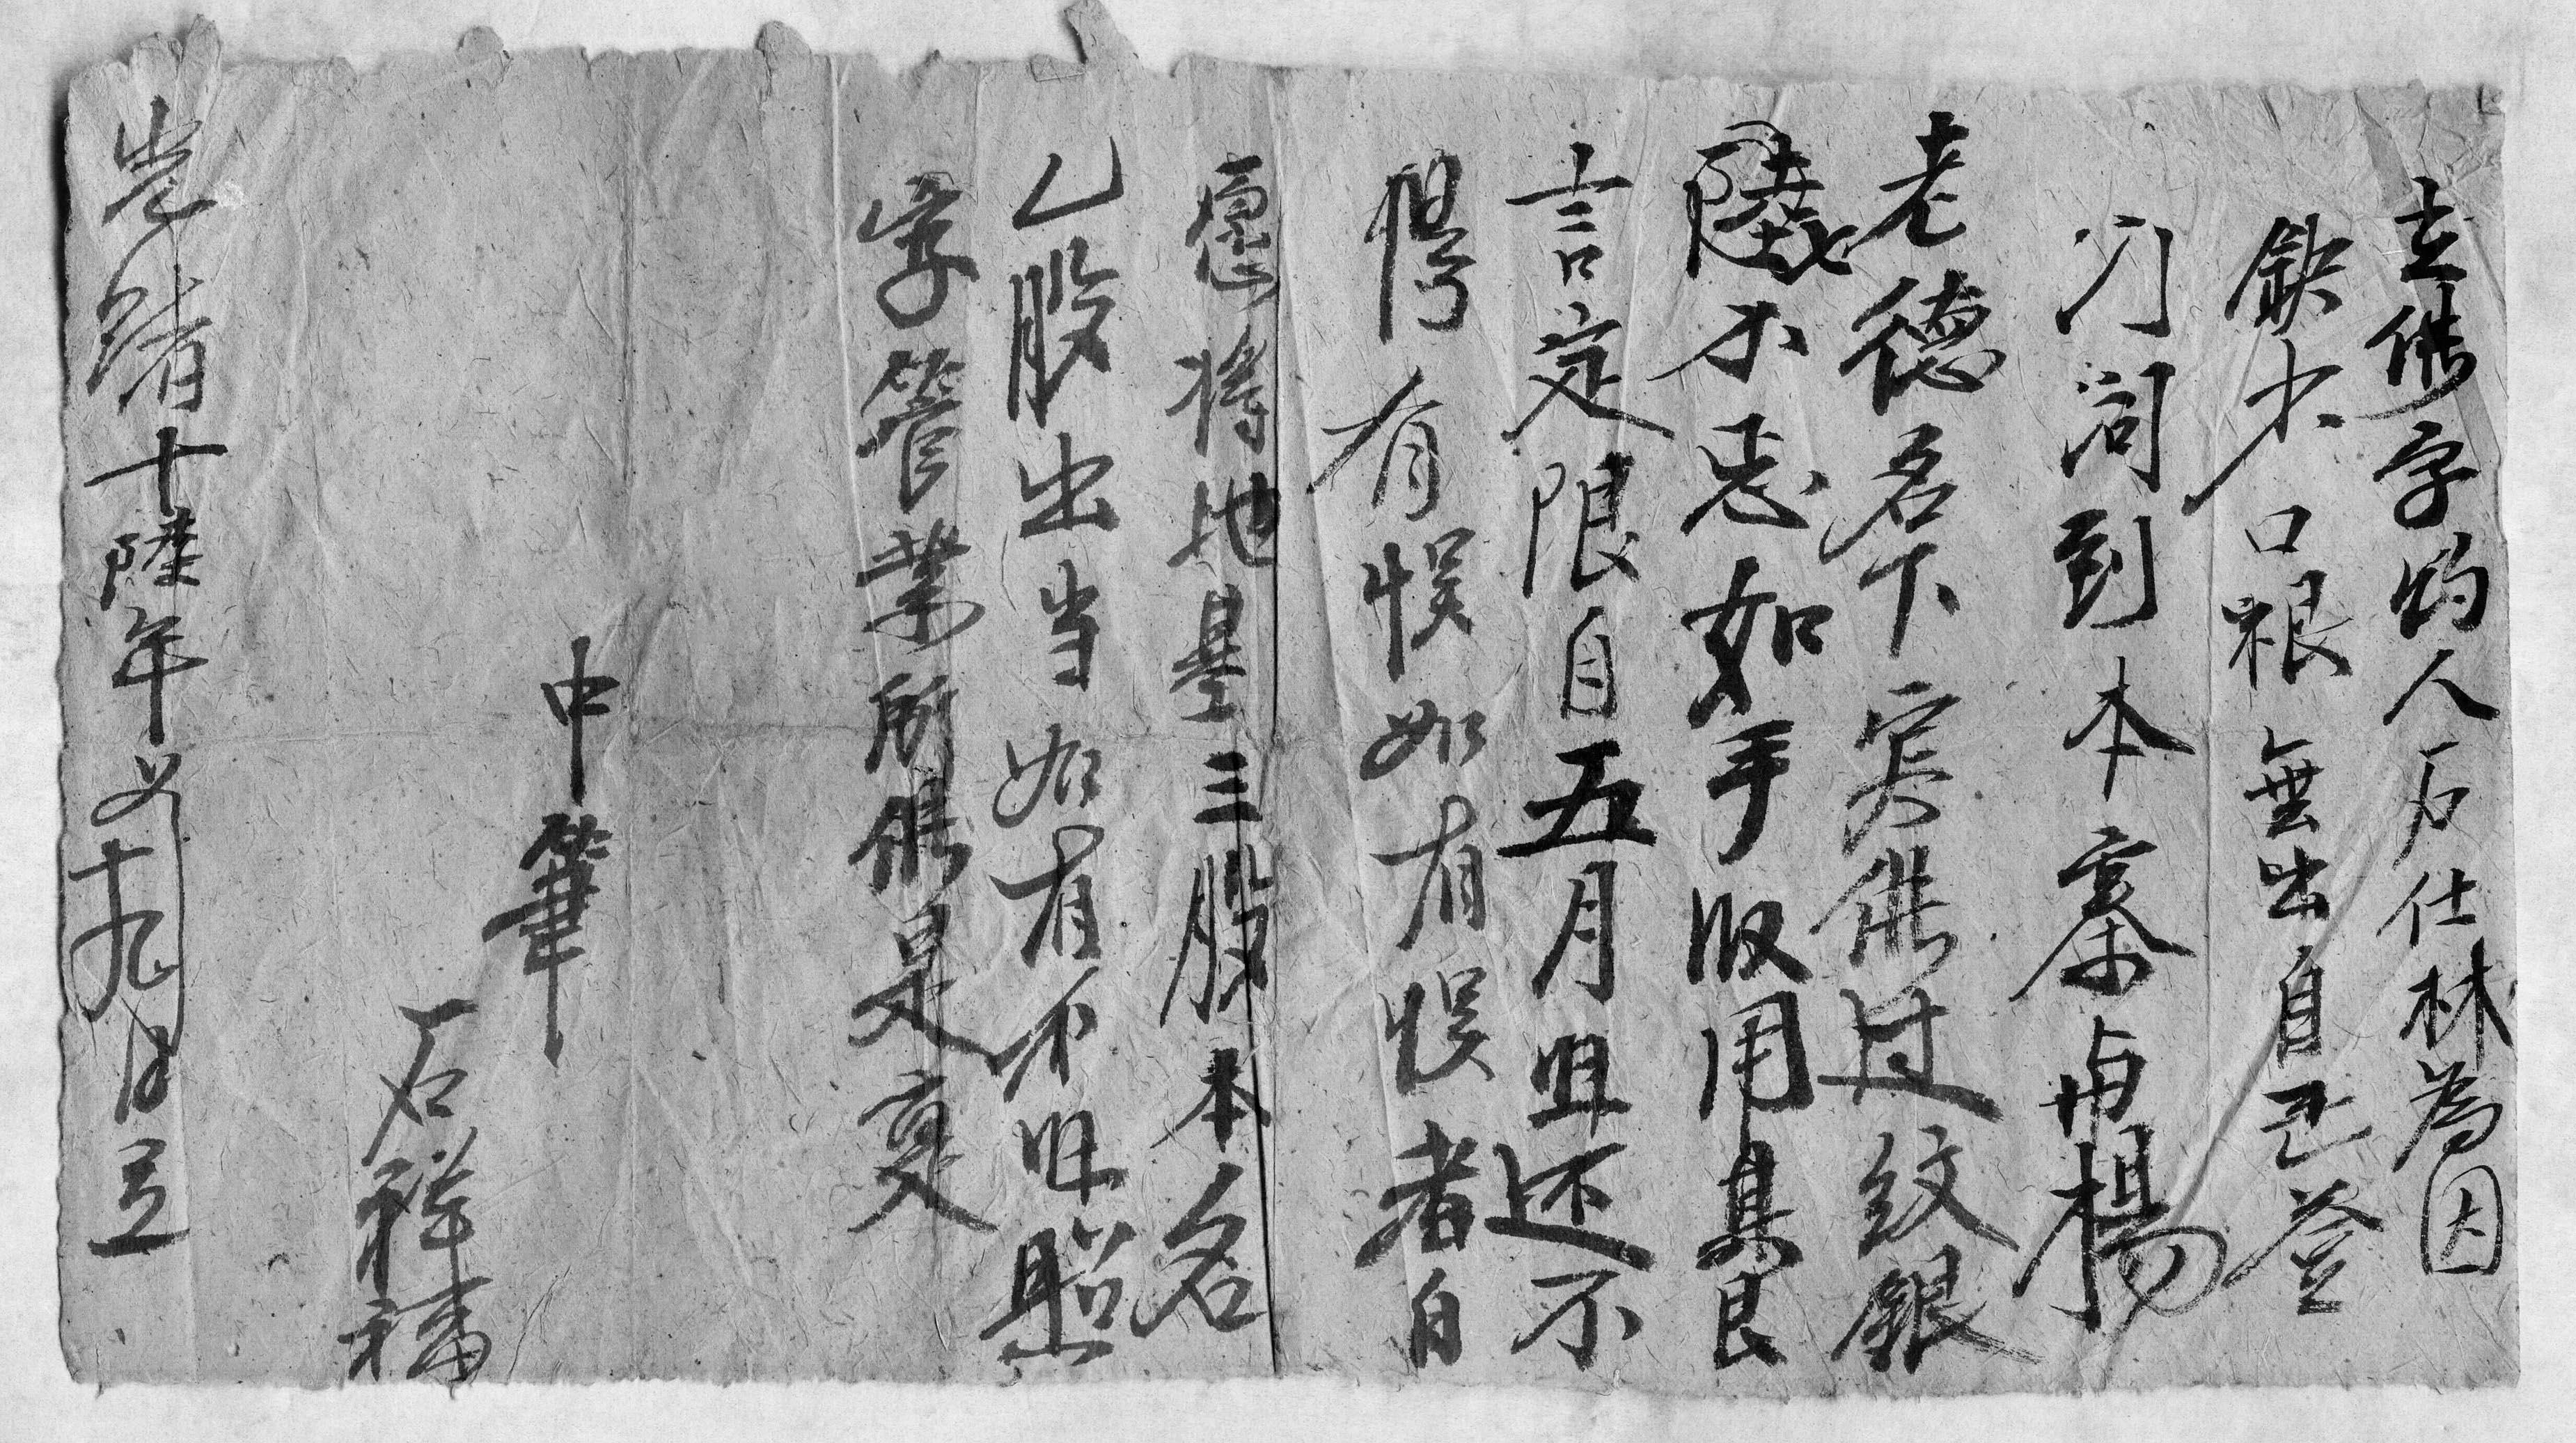 立借字约人石仕林為因
缺少口粮無出自己登
门问到本寨与楊
老德名下实借过紋銀
陸不忘如手收用其艮
言定限自五月𠰸还不
得有悮如有悮者自
愿将地基三股本名
乙股出当如有不𠰸照
字管業所借是寔
中筆
石祥福
光緒十陸年又十九日立